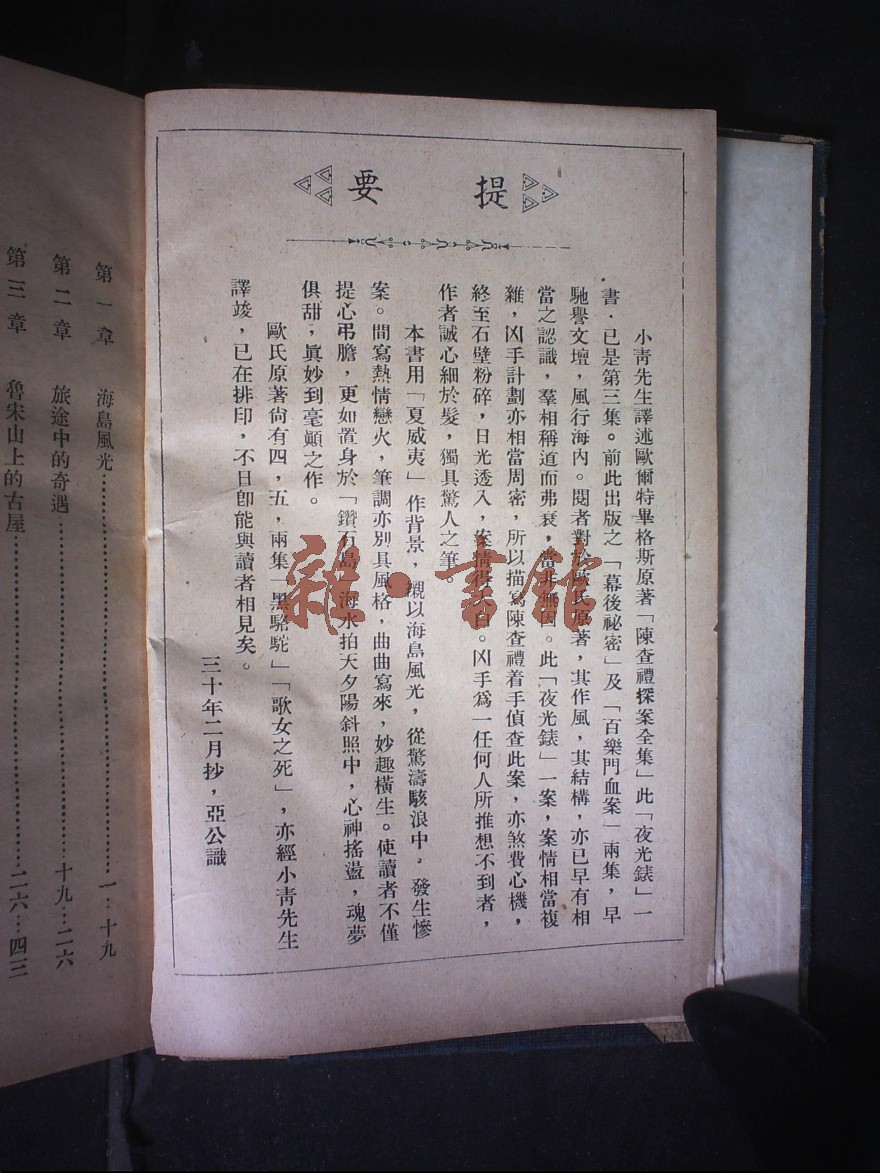 提要
小靑先生譯述歐爾特畢格斯原著「陳查禮探案全集」此「夜光錶」一
書．已是第三集。前此出版之「幕後祕密」及「百樂門血案」兩集，早
馳譽文壇，風行海內。閱者對於歐氏原著，其作風，其結構，亦已早有相
當之認識，羣相稱道而弗衰，當非無因。此「夜光錶」一案，案情相當複
雜，凶手計劃亦相當周密，所以描寫陳查禮着手偵查此案，亦煞費心機，
終至石壁粉碎，日光透入，案情得大白。凶手爲一任何人所推想不到者，
作者誠心細於髮，獨具驚人之筆。
本書用「夏威夷」作背景，襯以海島風光，從驚濤駭浪中，發生慘
案。間寫熱情戀火，筆調亦別具風格，曲曲寫來，妙趣橫生。使讀者不僅
提心弔膽，更如置身於「鑽石島」海水拍天夕陽斜照中，心神搖盪，魂夢
俱甜，眞妙到毫顚之作。
歐氏原著尙有四，五，兩集「黑駱駝」「歌女之死」，亦經小靑先生
譯竣，已在排印，不日卽能與讀者相見矣。
三十年二月抄，亞公識
第一章 海島風光……一…十九
第二章 旅途中的奇遇……十九…二六
第三章 魯宋山上的古屋……二六…四三
雜·書館